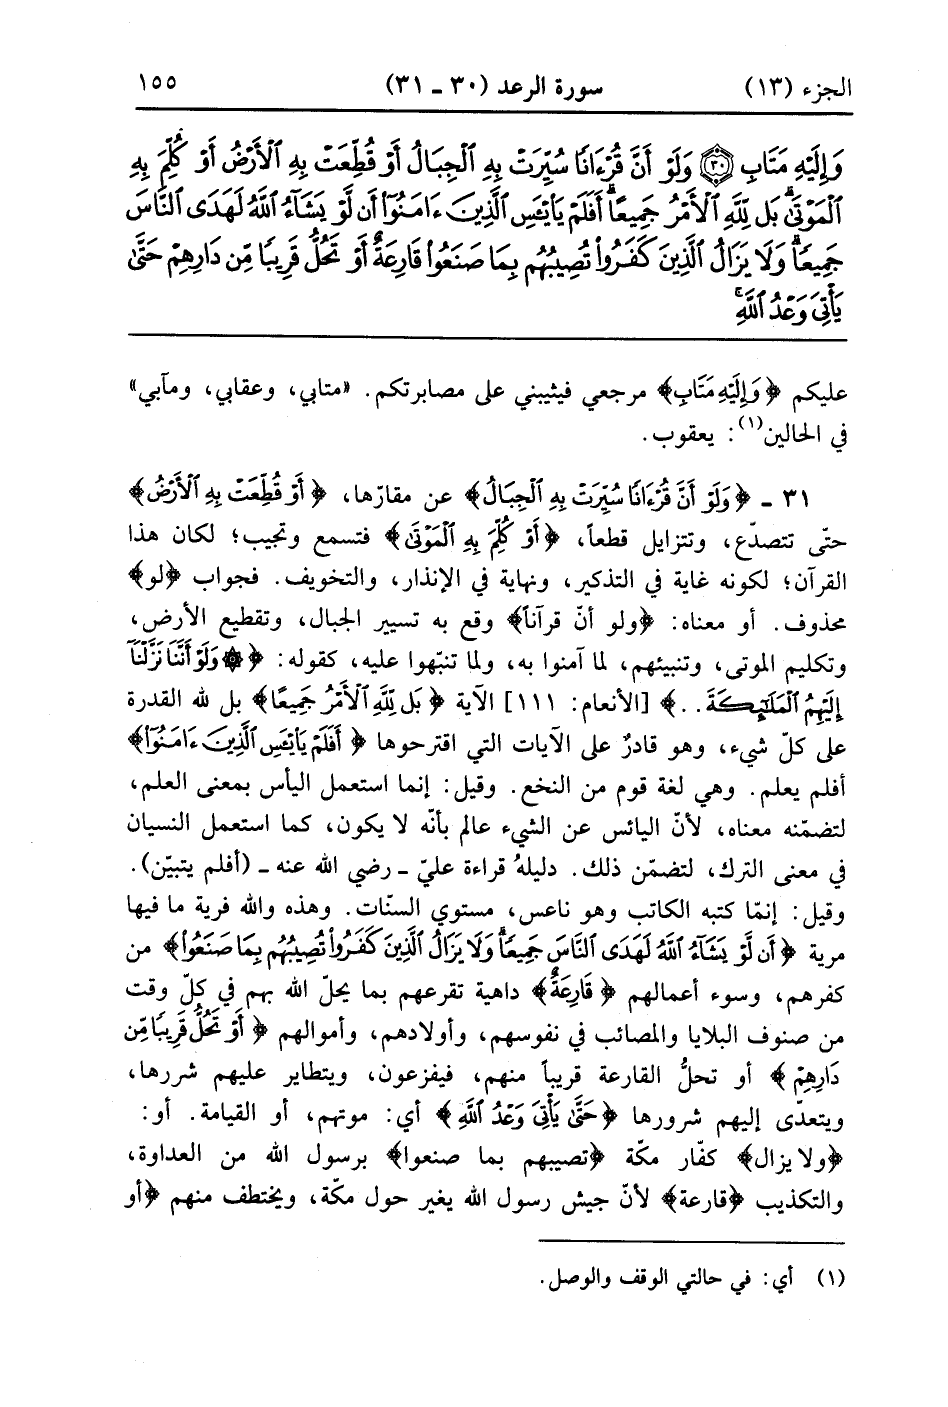 الجزء (١٣) سورة الرعد (٣٠ ـ ٣١) ١٥٥
وَإِلَيْهِ مَتَابِ ﴿٣٠﴾ وَلَوْ أَنَّ قُرْءَانًا سُيِّرَتْ بِهِ ٱلْجِبَالُ أَوْ قُطِّعَتْ بِهِ ٱلْأَرْضُ أَوْ كُلِّمَ بِهِ
ٱلْمَوْتَىٰۗ بَل لِّلَّهِ ٱلْأَمْرُ جَمِيعًاۗ أَفَلَمْ يَا۟يْـَٔسِ ٱلَّذِينَ ءَامَنُوٓا۟ أَن لَّوْ يَشَآءُ ٱللَّهُ لَهَدَى ٱلنَّاسَ
جَمِيعًاۗ وَلَا يَزَالُ ٱلَّذِينَ كَفَرُوا۟ تُصِيبُهُم بِمَا صَنَعُوا۟ قَارِعَةٌ أَوْ تَحُلُّ قَرِيبًا مِّن دَارِهِمْ حَتَّىٰ
يَأْتِىَ وَعْدُ ٱللَّهِۚ
عليكم ﴿وَإِلَيْهِ مَتَابِ﴾ مرجعي فيثيبني على مصابرتكم. «متابي، وعقابي، ومآبي»
في الحالين(١): يعقوب.
٣١ ـ ﴿وَلَوْ أَنَّ قُرْءَانًا سُيِّرَتْ بِهِ ٱلْجِبَالُ﴾ عن مقارّها، ﴿أَوْ قُطِّعَتْ بِهِ ٱلْأَرْضُ﴾
حتّى تتصدّع، وتتزايل قطعاً، ﴿أَوْ كُلِّمَ بِهِ ٱلْمَوْتَىٰ﴾ فتسمع وتجيب؛ لكان هذا
القرآن؛ لكونه غاية في التذكير، ونهاية في الإنذار، والتخويف. فجواب ﴿لو﴾
محذوف. أو معناه: ﴿ولو أنّ قرآناً﴾ وقع به تسيير الجبال، وتقطيع الأرض،
وتكليم الموتى، وتنبيئهم، لما آمنوا به، ولما تنبّهوا عليه، كقوله: ﴿۞ وَلَوْ أَنَّنَا نَزَّلْنَآ
إِلَيْهِمُ ٱلْمَلَٰٓئِكَةَ . .﴾ [الأنعام: ١١١] الآية ﴿بَل لِّلَّهِ ٱلْأَمْرُ جَمِيعًا﴾ بل لله القدرة
على كلّ شيء، وهو قادرٌ على الآيات التي اقترحوها ﴿أَفَلَمْ يَا۟يْـَٔسِ ٱلَّذِينَ ءَامَنُوٓا۟﴾
أفلم يعلم. وهي لغة قوم من النخع. وقيل: إنما استعمل اليأس بمعنى العلم،
لتضمّنه معناه، لأنّ اليائس عن الشيء عالم بأنّه لا يكون، كما استعمل النسيان
في معنى الترك، لتضمّن ذلك. دليلهُ قراءة عليّ ـ رضي الله عنه ـ (أفلم يتبيّن).
وقيل: إنمّا كتبه الكاتب وهو ناعس، مستوي السنّات. وهذه والله فرية ما فيها
مرية ﴿أَن لَّوْ يَشَآءُ ٱللَّهُ لَهَدَى ٱلنَّاسَ جَمِيعًاۗ وَلَا يَزَالُ ٱلَّذِينَ كَفَرُوا۟ تُصِيبُهُم بِمَا صَنَعُوا۟﴾ من
كفرهم، وسوء أعمالهم ﴿قَارِعَةٌ﴾ داهية تقرعهم بما يحلّ الله بهم في كلّ وقت
من صنوف البلايا والمصائب في نفوسهم، وأولادهم، وأموالهم ﴿أَوْ تَحُلُّ قَرِيبًا مِّن
دَارِهِمْ﴾ أو تحلُّ القارعة قريباً منهم، فيفزعون، ويتطاير عليهم شررها،
ويتعدّى إليهم شرورها ﴿حَتَّىٰ يَأْتِىَ وَعْدُ ٱللَّهِ﴾ أي: موتهم، أو القيامة. أو:
﴿ولا يزال﴾ كفّار مكّة ﴿تصيبهم بما صنعوا﴾ برسول الله من العداوة،
والتكذيب ﴿قارعة﴾ لأنّ جيش رسول الله يغير حول مكّة، ويختطف منهم ﴿أو
(١) أي: في حالتي الوقف والوصل.